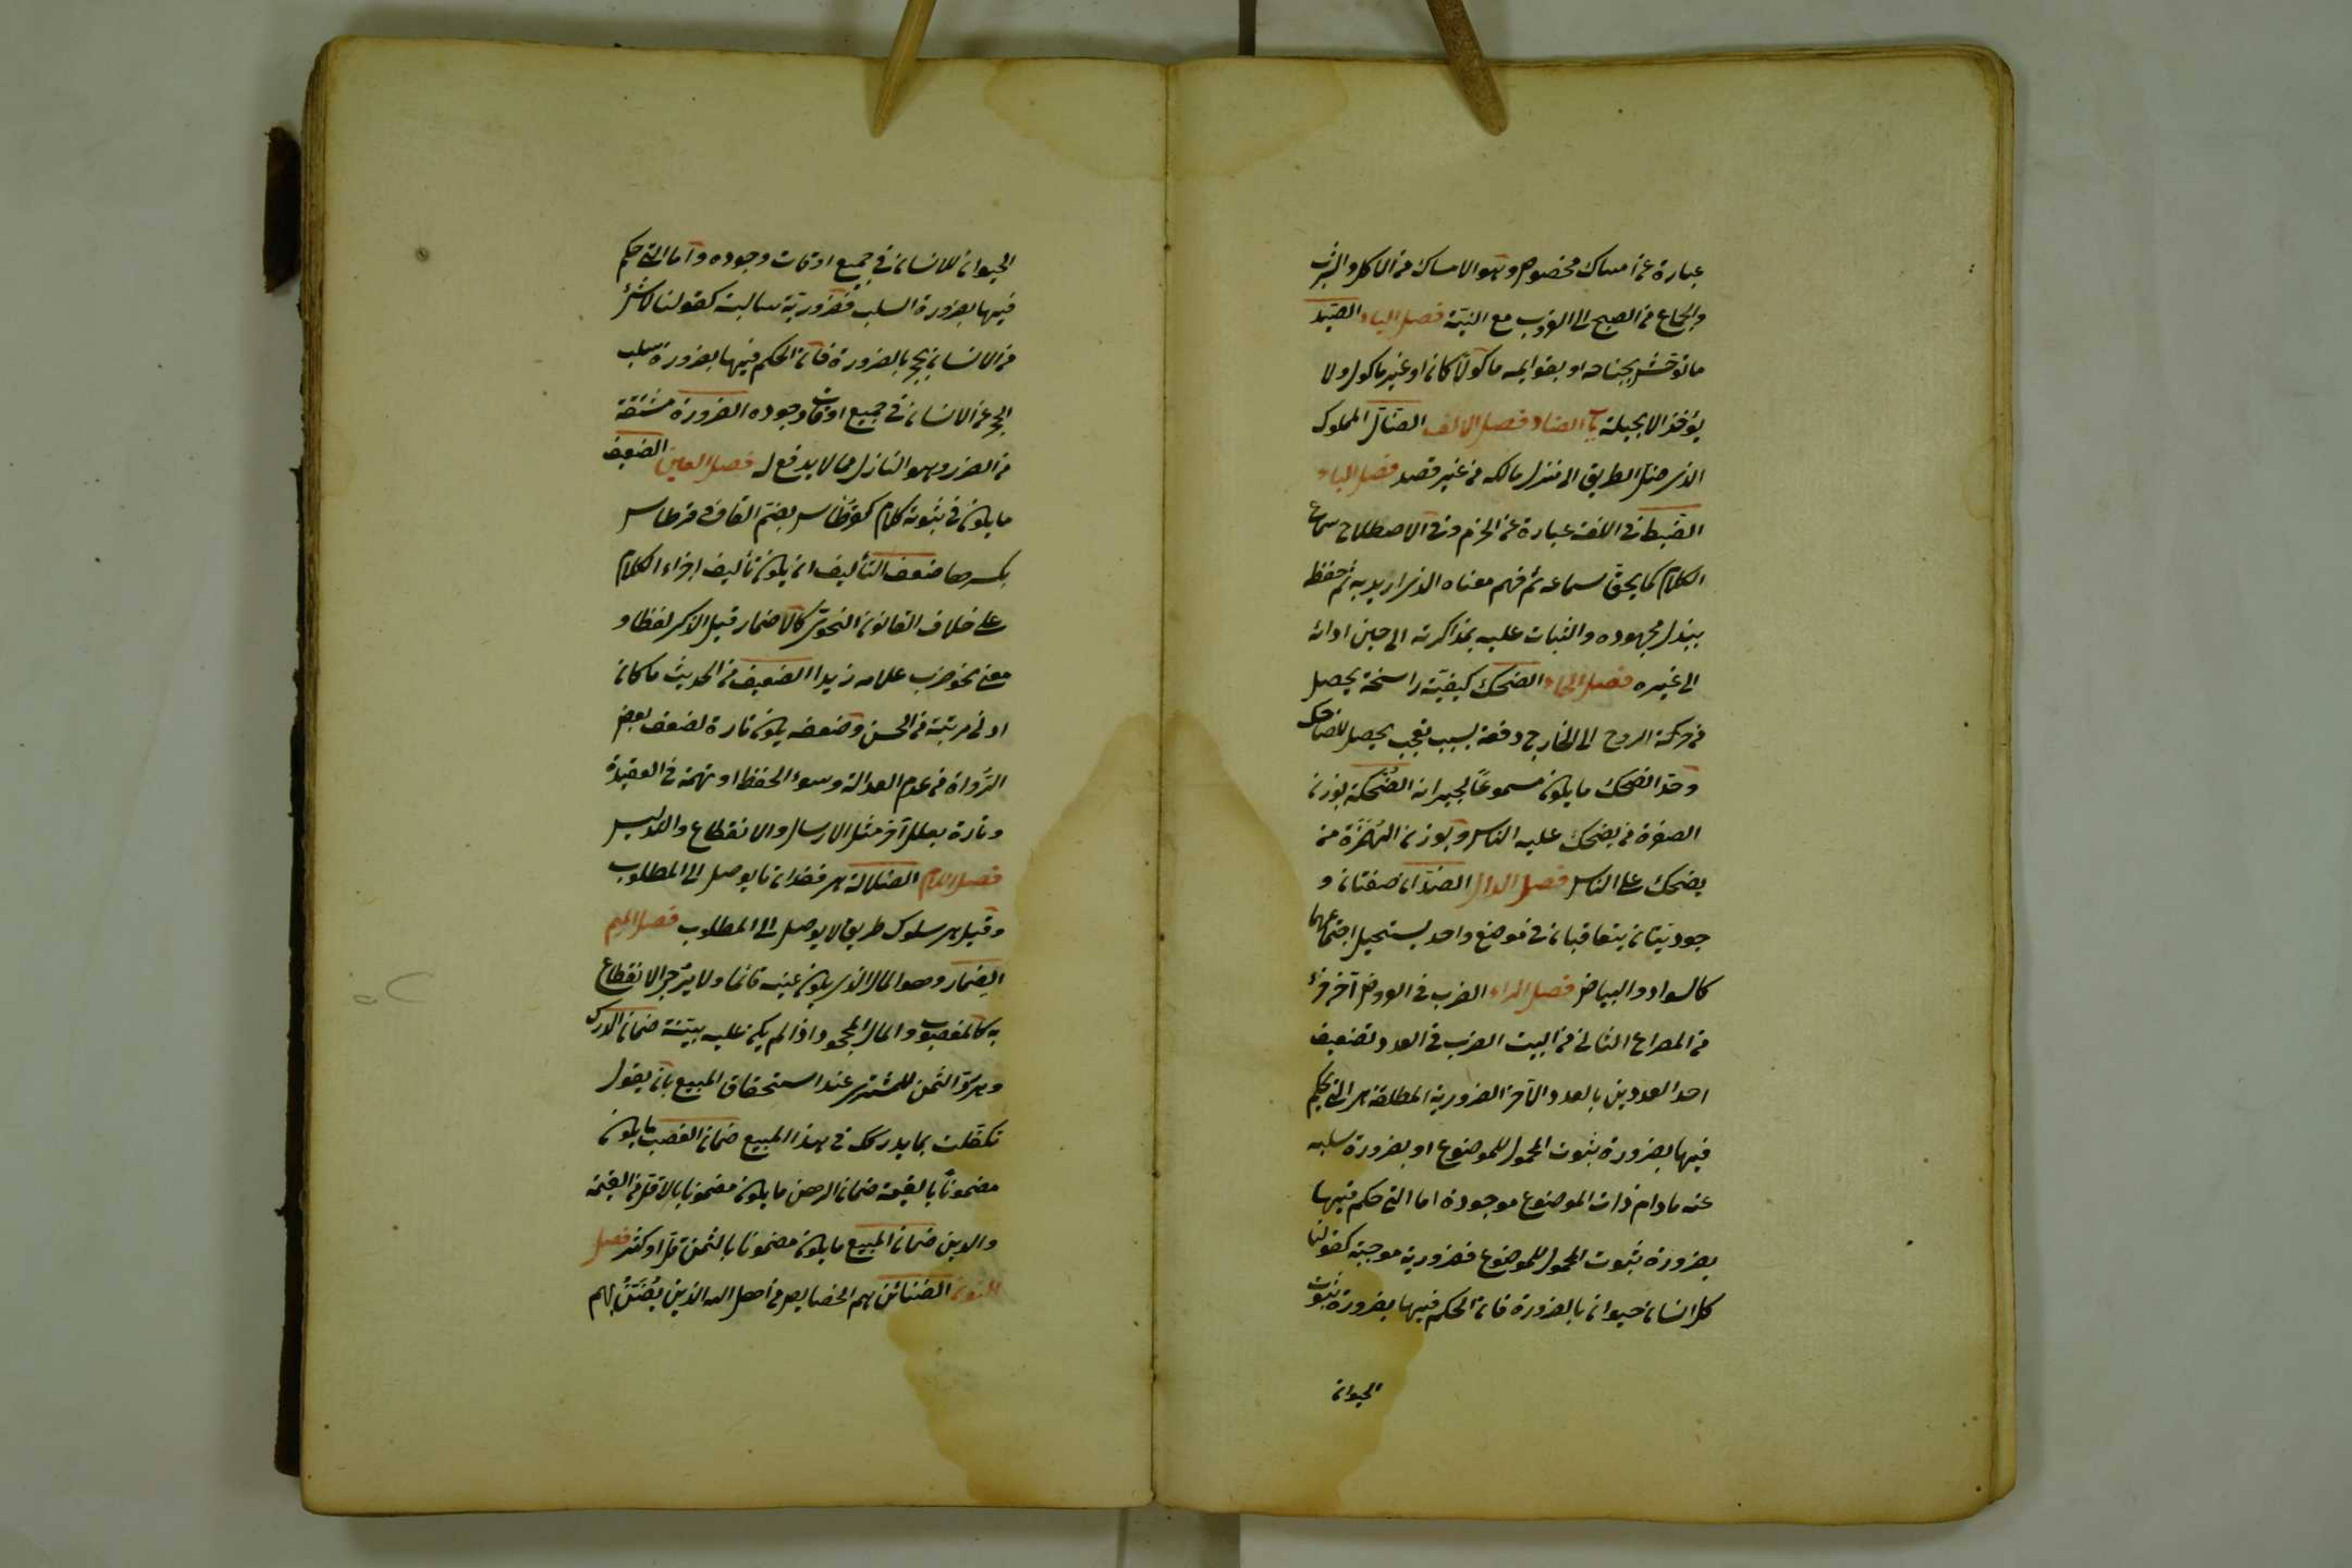 عبارة عن امساك مخصوص وهو الامساك من الاكل والشرب
والجماع من الصبح الى الغروب مع النية فصل الياء الصيد
ما توحش بجناحه او بقوايمه ماكولا كان او غير ماكول ولا
يؤخذ الا بحيلة باب الضاد فصل الالف الضال المملوك
الذى ضل الطريق الى منزل مالكه من غير قصد فصل الباء
الضبط فى اللغة عبارة عن الحزم وفى الاصطلاح سماع
الكلام كما يحق سماعه ثم فهم معناه الذى اريد به ثم حفظه
ببذل مجهوده والثبات عليه بمذاكرته الى حين ادائه
الى غيره فصل الحاء الضحك كيفية راسخة يحصل
من حركة الروح الى الخارج دفعة بسبب تعجب يحصل للضاحك
وحد الضحك ما يكون مسموعا لجيرانه الضحكة بوزن
الصفرة من يضحك عليه الناس وبوزن الهمزة من
يضحك على الناس فصل الدال الضدان صفتان و
جوديتان يتعاقبان فى موضع واحد يستحيل اجتماعهما
كالسواد والبياض فصل الراء الضرب فى العروض آخر جزء
من المصراع الثانى من البيت الضرب فى العدد تضعيف
احد العددين بالعدد الآخر الضرورية المطلقة هى التى يحكم
فيها بضرورة ثبوت المحمول للموضوع او بضرورة سلبه
عنه مادام ذات الموضوع موجودة اما التى حكم فيها
بضرورة ثبوت المحمول للموضوع فضرورية موجبة كقولنا
كل انسان حيوان بالضرورة فان الحكم فيها بضرورة ثبوت
الحيوان
الحيوان للانسان فى جميع اوقات وجوده واما التى حكم
فيها بضرورة السلب فضرورية سالبة كقولنا لا شئ
من الانسان بحجر بالضرورة فان الحكم فيها بضرورة سلب
الحجر عن الانسان فى جميع اوقات وجوده الضرورة مشتقة
من الضرر وهو النازل مما لا مدفع له فصل العين الضعيف
ما يكون فى ثبوته كلام كقرطاس بضم القاف فى قرطاس
بكسرها ضعف التأليف ان يكون تأليف اجزاء الكلام
على خلاف القانون النحوى كالاضمار قبل الذكر لفظا و
معنى نحو ضرب غلامه زيدا الضعيف من الحديث ما كان
ادنى مرتبة من الحسن وضعفه يكون تارة لضعف بعض
الرواة من عدم العدالة وسوء الحفظ او تهمة فى العقيدة
وتارة بعلل آخر مثل الارسال والانقطاع والتدليس
فصل اللام الضلالة هى فقدان ما يوصل الى المطلوب
وقيل هى سلوك طريق لا يوصل الى المطلوب فصل الميم
الضمار وهو المال الذى يكون عينه قائما ولا يرجى الانتفاع
به كالمغصوب والمال المجحود اذا لم يكن عليه بينة ضمان الدرك
وهو رد الثمن للمشترى عند استحقاق المبيع بان يقول
تكفلت بما يدركك فى هذا المبيع ضمان الغصب ما يكون
مضمونا بالقيمة ضمان الرهن ما يكون مضمونا بالاقل من القيمة
والدين ضمان المبيع ما يكون مضمونا بالثمن قل او كثر فصل
النون الضنائن هم الخصايص من اهل الله الذين يضن بهم